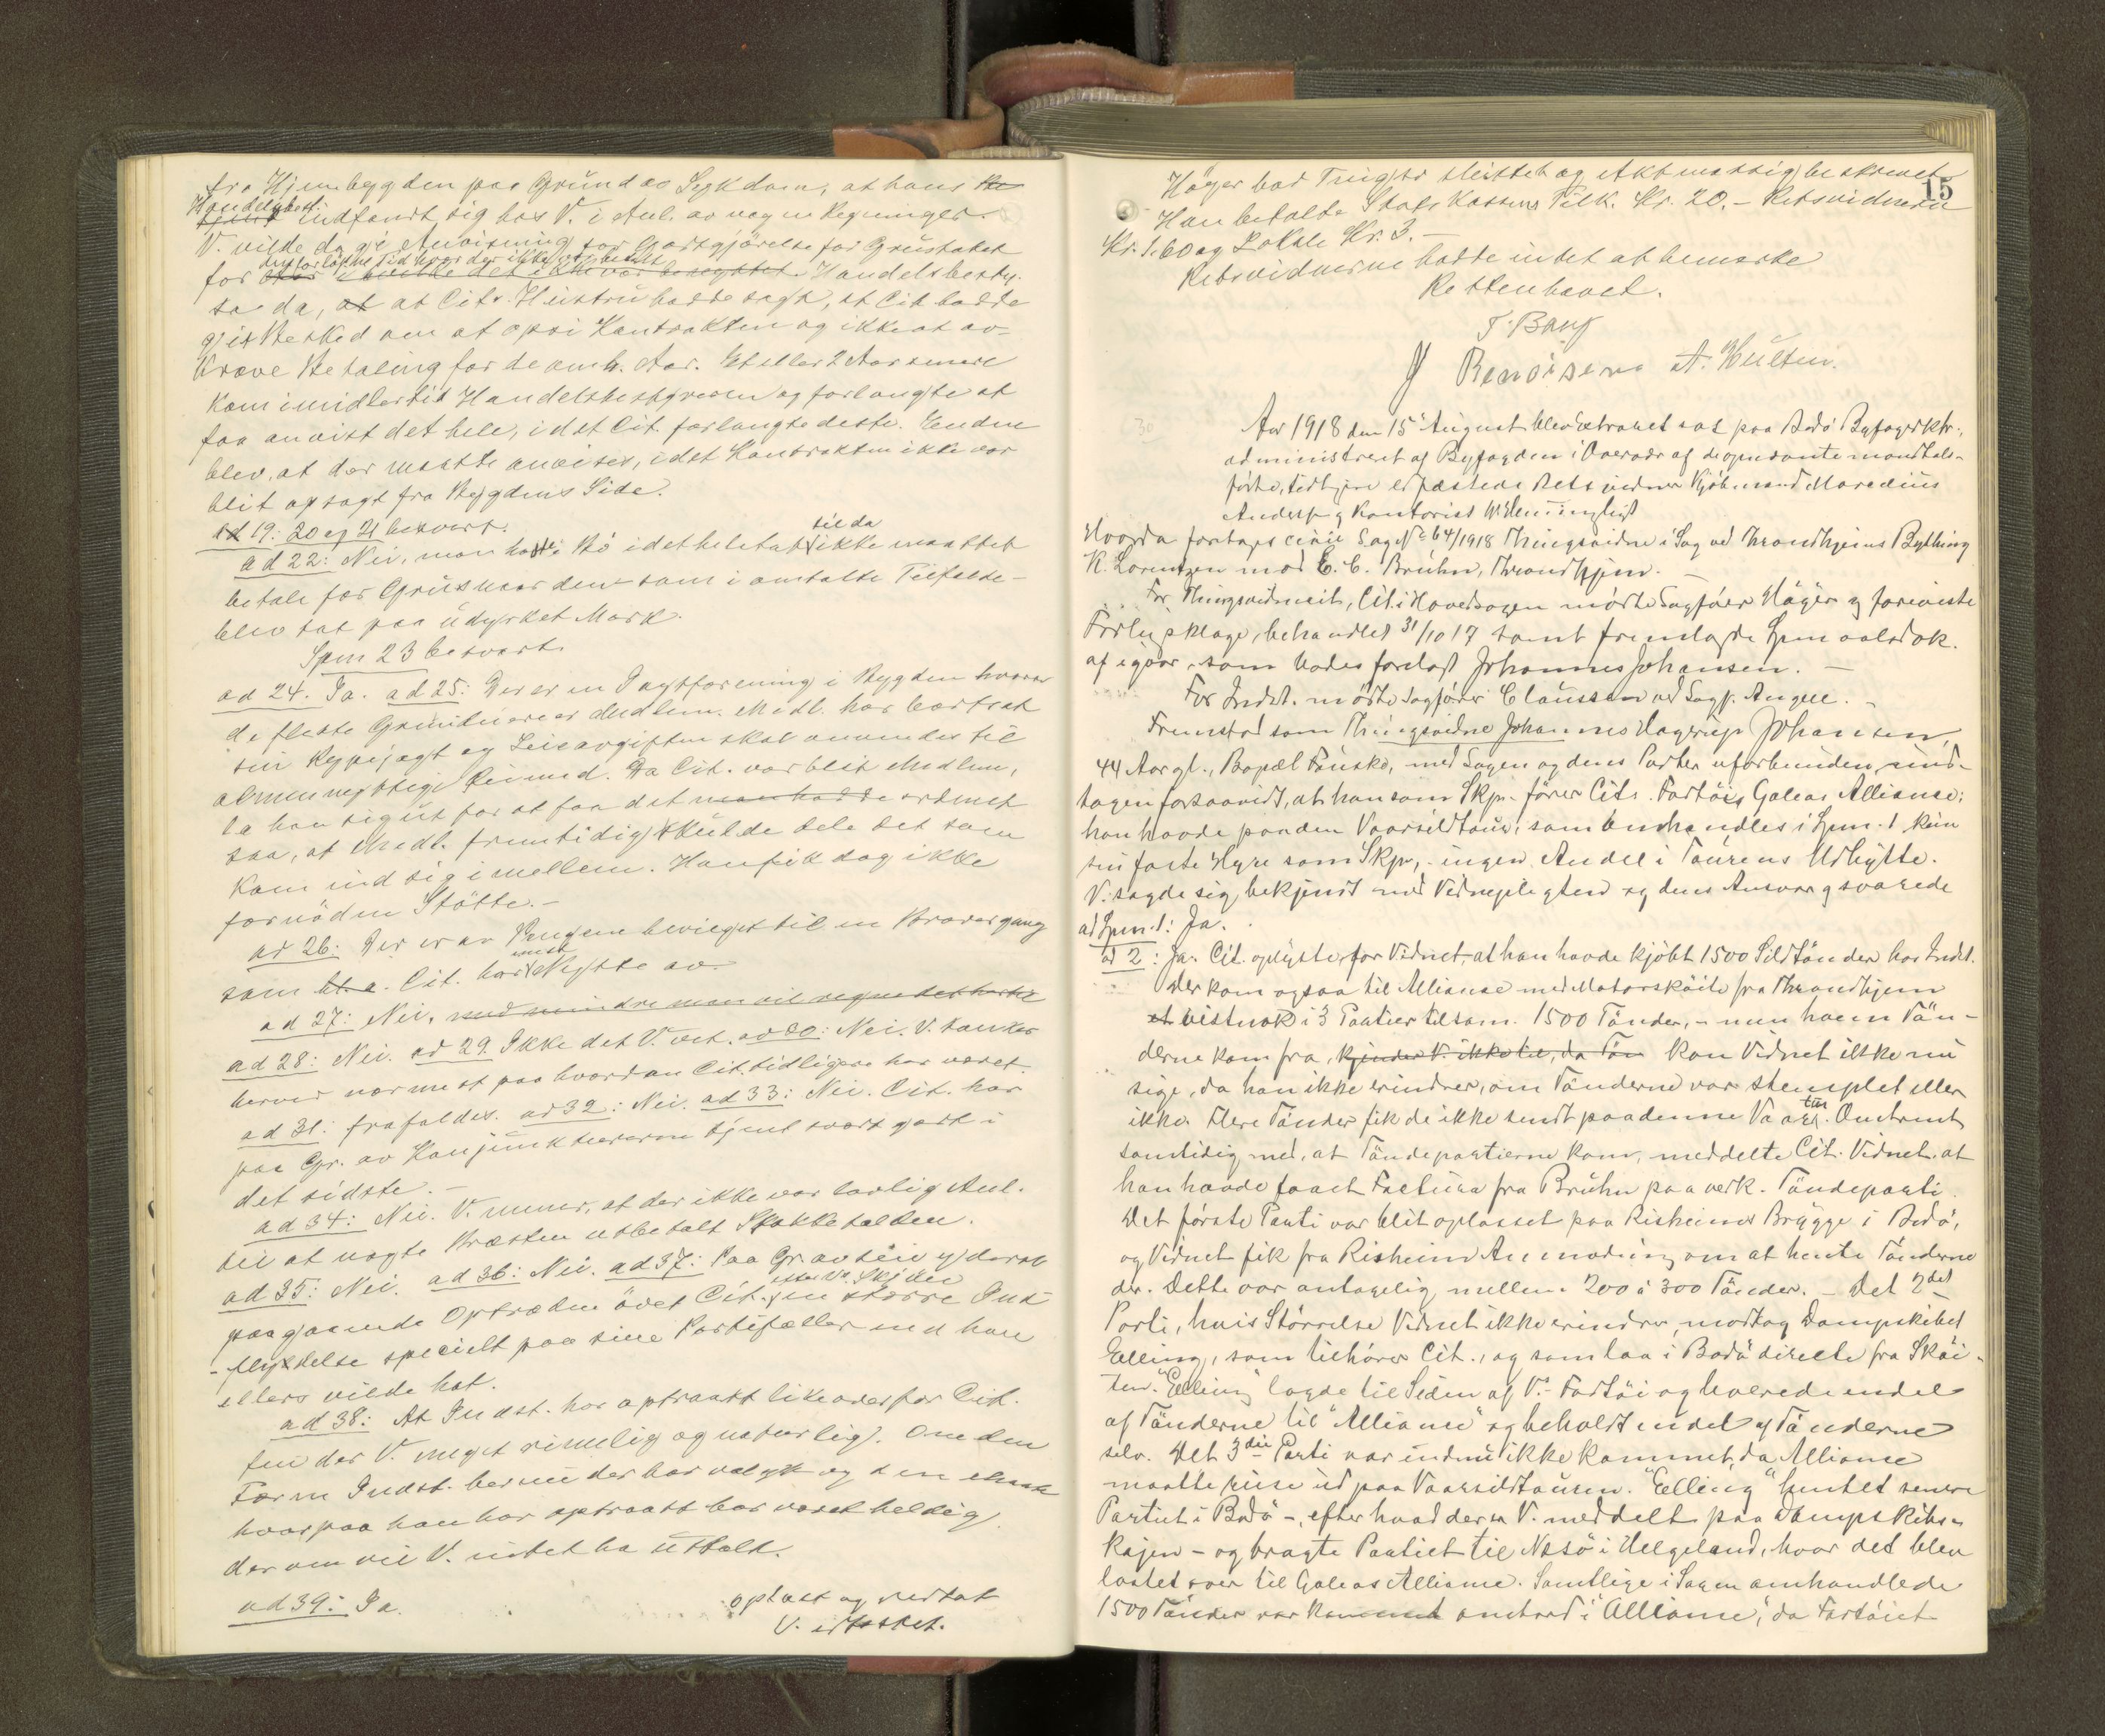 fra Hjembygden paa Grund av Sykdom, at hans
Handelsbest. indfandt sig hos V. i Anl. av nogen Regninger.
V. vilde da gi Anvisning for Godtgjörelse for Grustaket
for den forløpne Tid hvor der ikke var betalt. Handelsbesty.
sa da, at at Cits. Hustru hadde sagt, at Cit hadde
git Besked om at opsi Kontrakten og ikke at av-
kræve Betaling for de omh. Aar. Et eller 2 Aar senere
kom imidlertid Handelsbestyreren og forlangte at
faa anvist det hele, idet Cit. forlangte dette. Enden
blev, at der maatte anvises, idet Kontrakten ikke var
blit opsagt fra Bygdens Side.
ad 19: 20 og 21 besvart.
ad 22: Nei, man hadde i Bö i det hele tat til da ikke maattet
betale for Grus hvor den som i omtalte Tilfælde -
blev tat paa udyrket Mark.
Spm 23 besvart.
ad 24. Ja. ad 25: Der er en Jagtforening i Bygden hvorav
de fleste Grundeiere er Medlem. Medl. har bortsat
sin Rypejagt og Leieavgiften skal anvendes til
almennyttige Øiemed. Da Cit. var blit Medlem,
la han sig ut for at faa det man hadde ordnet
saa, at Medl. fremtidig skulde dele det som
kom ind sig imellem. Han fik dog ikke
fornöden Stötte. -
ad 26: Der er av Pengene bevilget til en Kraverogang
som bl. a. Cit. har mest Nytte av.
ad 27: Nei, med mindre man vil regne det hertil
ad 28: Nei. ad 29. Ikke det V. vet. ad 30: Nei. V. tænker
herved nærmest paa hvordan Cit. tidligere har været.
ad 31: frafaldes. ad 32: Nei. ad 33: Nei. Cit. har
paa Gr. av Konjunkturerne tjent svært godt i
det sidste. -
ad 34: Nei. V. mener, at der ikke var lovlig Anl.
til at negte Præsten utbetalt Stakketælden.
ad 35: Nei. ad 36: Nei. ad 37: Paa Gr. av sin yderst
paagaaende Optræden övet Cit. efter Vs. Skjön en större Ind-
- flydelse specielt paa sine Partifæller end han
ellers vilde hat.
ad 38: At Indst. har optraatt likeoverfor Cit.
finder V. meget rimelig og naturlig. Om den
Form Indst. herunder har valgt og den
hvorpaa han har optraatt har været heldig,
derom vil V. intet ha uttalt.
ad 39: Ja.
oplæst og vedtat
V. idtraadt.
15
Höyer bad Tingsv. sluttet og Aktmæssig beskrevet
Han betalte Stats Kassens Tilk. Kr. 20. - Retsvidnerne
Kr. 1.60 og Lokale Kr. 3. -
Retsvidnerne hadde intet at bemærke
Retten hævet.
T. Bang
J Benoisen A. Hulten.
30
Aar 1918 den 15 August blev Extraret sat paa Bodö Byfogedktr.,
administreret af Byfogden i Overvær af de opnævnte mandtals-
førte, tidligere edfæstede Retsvidner Kjöbmand Maredius
Anders og Kontorist W. Hemmingligt
Hvorda foretages civil Sag No 64/1918 Thingsvidne i Sag ved Throndhjems Bything
K. Lorentzen mod E. C. Bruhn, Throndhjem. -
For Thingsvidneit, Cit. i Hovedsagen mödte Sagförer Höyer og foreviste
Forligsklage, behandlet 31/10 17 samt fremlagde Spmaalsdok.
af igaar, som bades forelagt Johannes Johansen. -
For Indst. mödte Sagförer Claussen ved Sagf. Angell. -
Fremstod som Thingsvidne Johannes Hagerup Johansen,
44 Aar gl., Bopæl Fauske, med Sagen og dens Parter uforbunden, und-
tagen forsaavidt, at han som Skpr. förer Cits. Fartöis Galeas Alliance;
han havde paa den Vaarsildtour, som omhandles i Spm. 1 kun
sin faste Hyre som Skpr., ingen Andel i Tourens Udbytte.
V. sagde sig bekjendt med Vidnepligten og dens Ansvar og svarede
ad Spm. 1: Ja.
ad 2: Ja. Cit. oplyste for Vidnet, at han havde kjöbt 1500 Sildtönder hos Indst.
Der kom ogsaa til Alliance med Motorsköite fra Throndhjem
et vistnok i 3 Partier tilsam. 1500 Tönder, - men hvem Tön-
derne kom fra, kjender V. ikke til, da Tön kan Vidnet ikke nu
sige, da han ikke erindrer, om Tönderne var stemplet eller
ikke. Flere Tönder fik de ikke sendt paa denne Vaartur. Omtrent
samtidig med, at Töndepartierne kom, meddelte Cit. Vidnet, at
han havde faaet Factura fra Bruhn paa verk. Töndeparti.
Det förste Parti var blit oplosset paa Risheims Brygge i Bodö,
og Vidnet fik fra Risheim Anmodning om at hente Tönderne
der. Dette var antagelig mellem 200 à 300 Tönder. - Det 2det
Parti, hvis Störrelse Vidnet ikke erindrer, modtog Dampskibet
Elling, som tilhörer Cit., og som laa i Bodö directe fra Sköi-
ten. "Elling" lagde til Siden af V.s Fartöi og leverede endel
af Tönderne til "Alliance" og beholdt en del af Tönderne
selv. Det 3die Parti var endnu ikke kommet, da Alliance
maatte reise ud paa Vaarsildtouren. "Elling" hentet senere
Partiet i Bodö -, efter hvad der er V. meddelt paa Dampskibs-
kajen - og bragte Partiet til Nesö i Helgeland, hvor det blev
lastet over til Galeas Alliance. Samtlige i Sagen omhandlede
1500 Tönder var kommet ombord i "Alliance", da Fartöiet